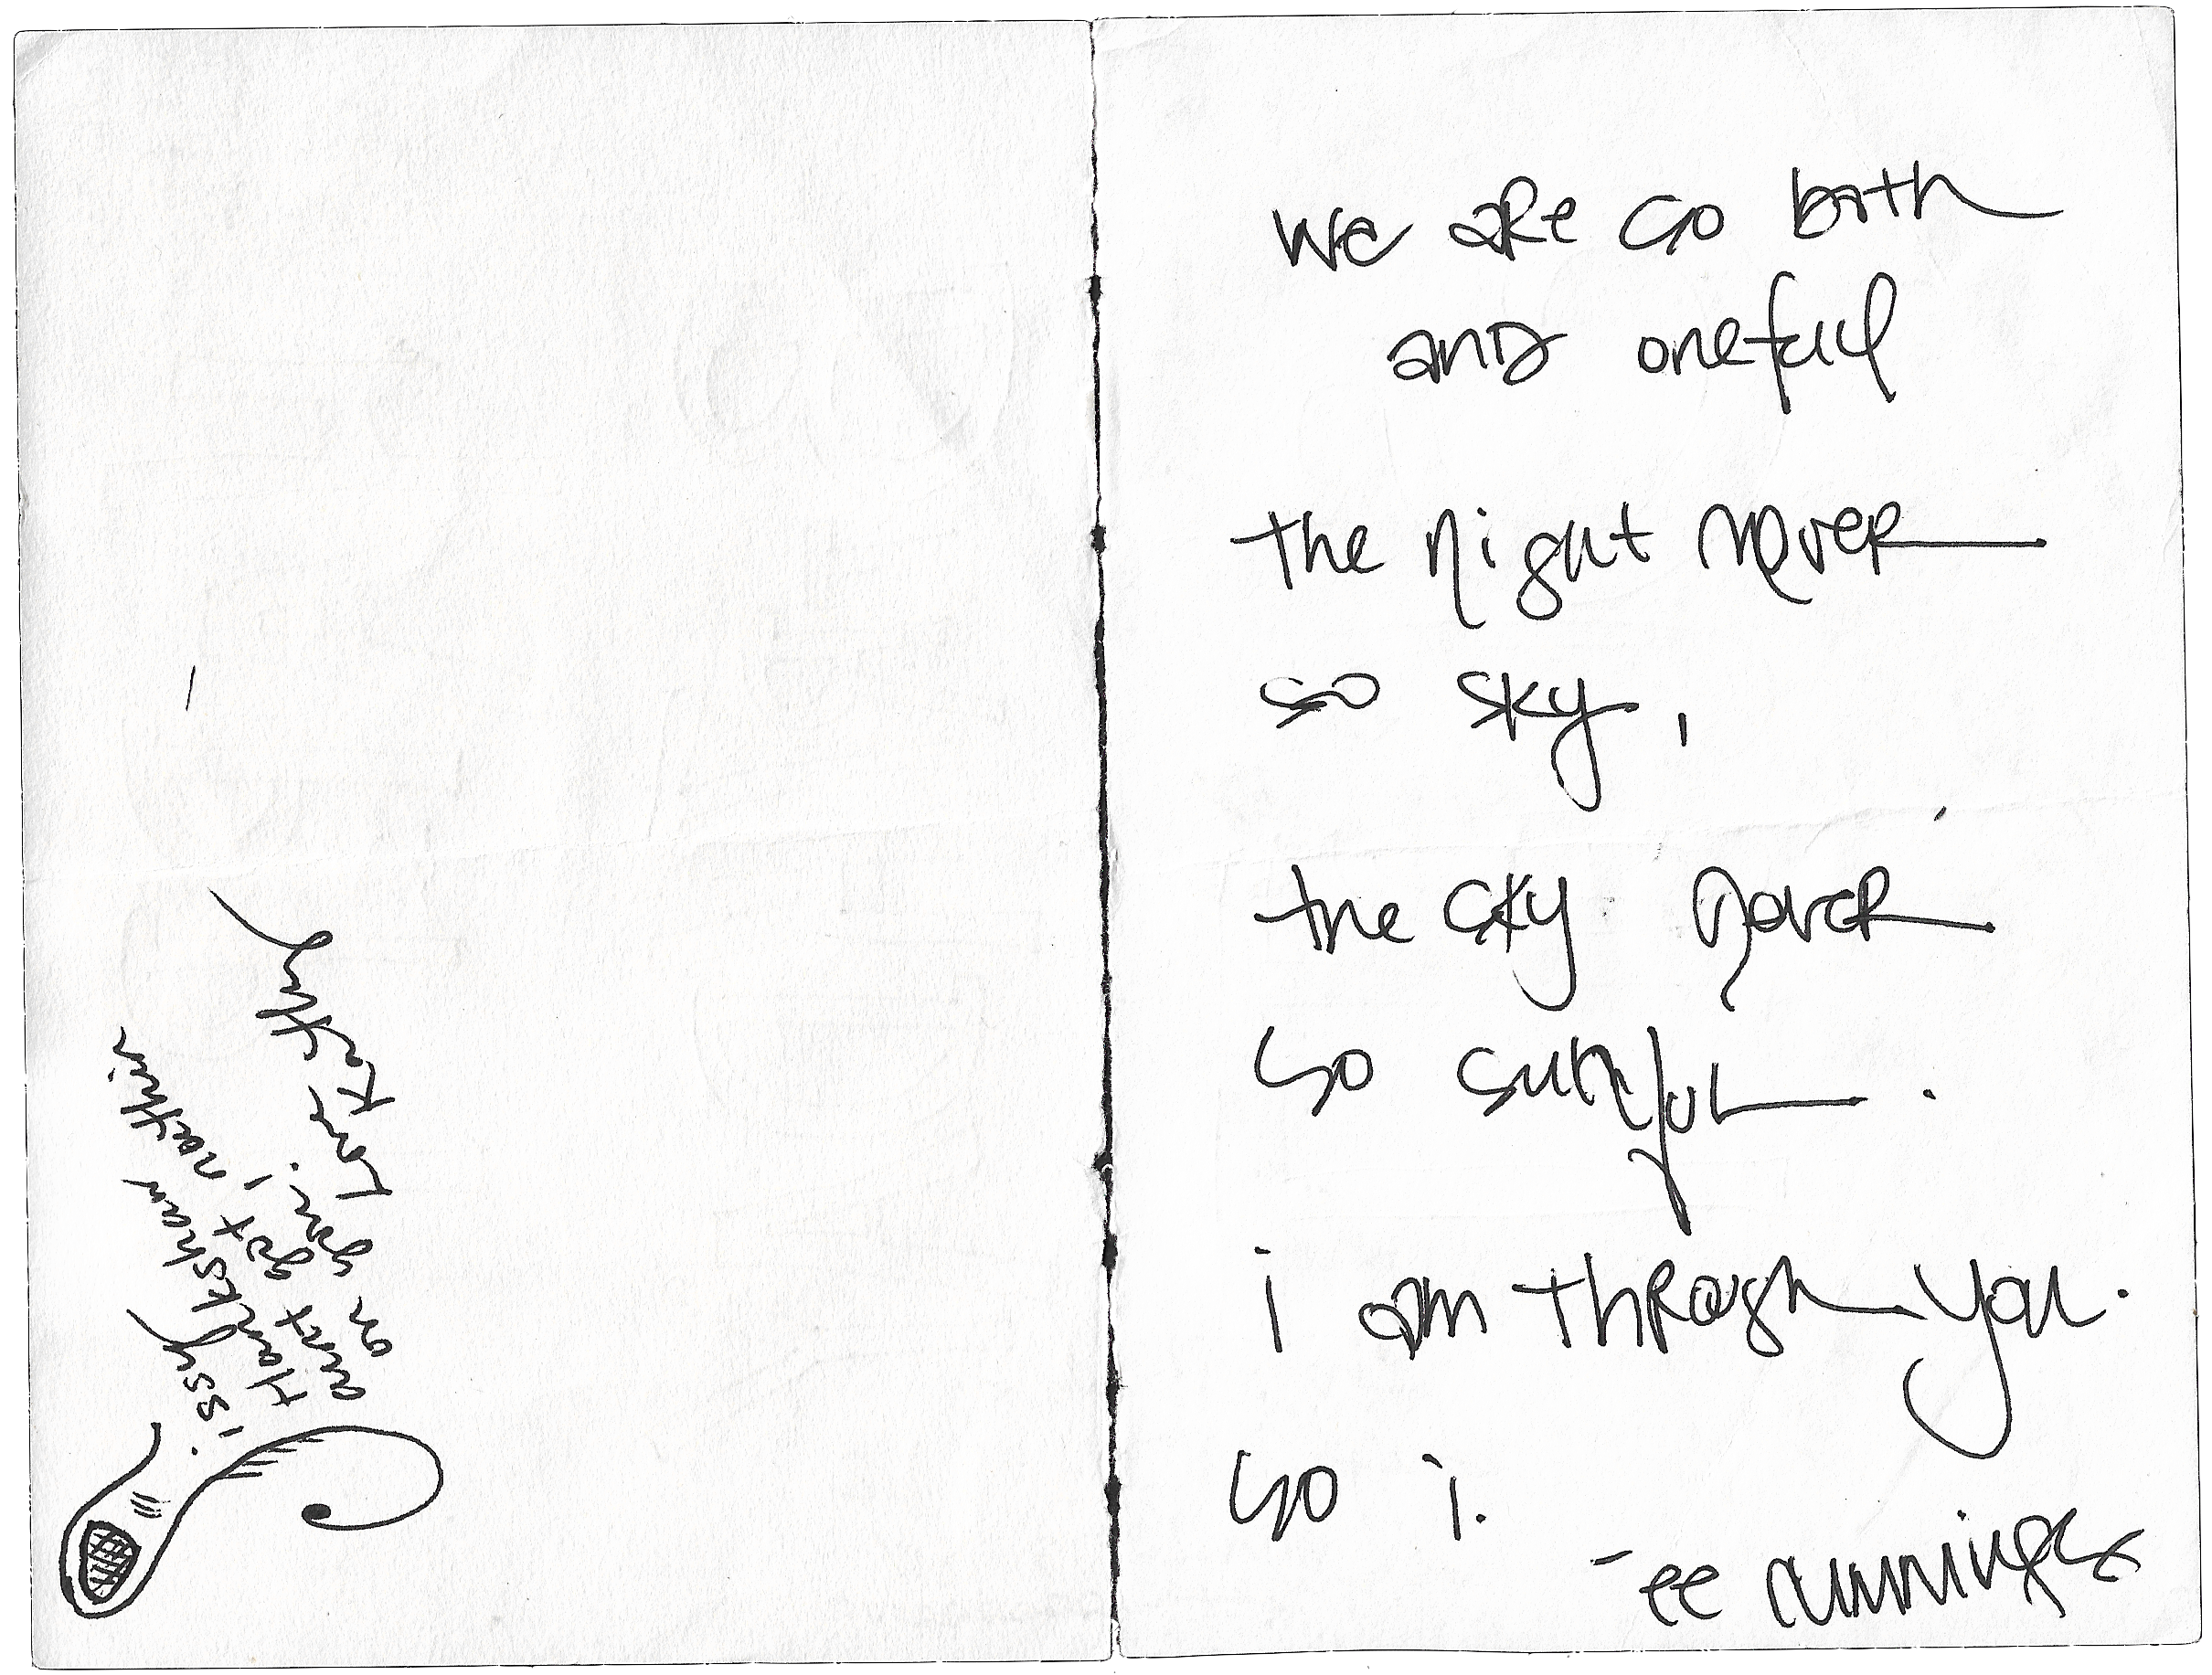 on you! Love Kathy
we are so both
and oneful
the night never
so sky,
the sky never
so sunful.
i am through you.
so i.
- ee cummings